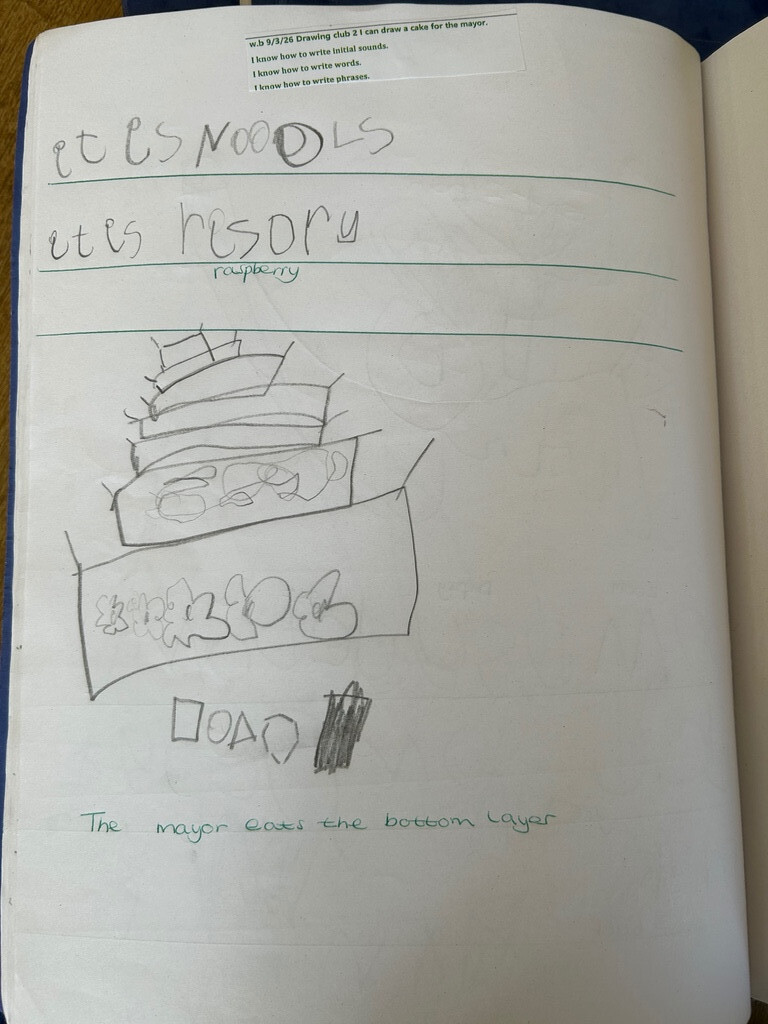 w.b 9/3/26 Drawing club 2 I can draw a cake for the mayor.
I know how to write initial sounds.
I know how to write words.
I know how to write phrases.
et es NOOOLS
et es resory
raspberry
The mayor eats the bottom layer